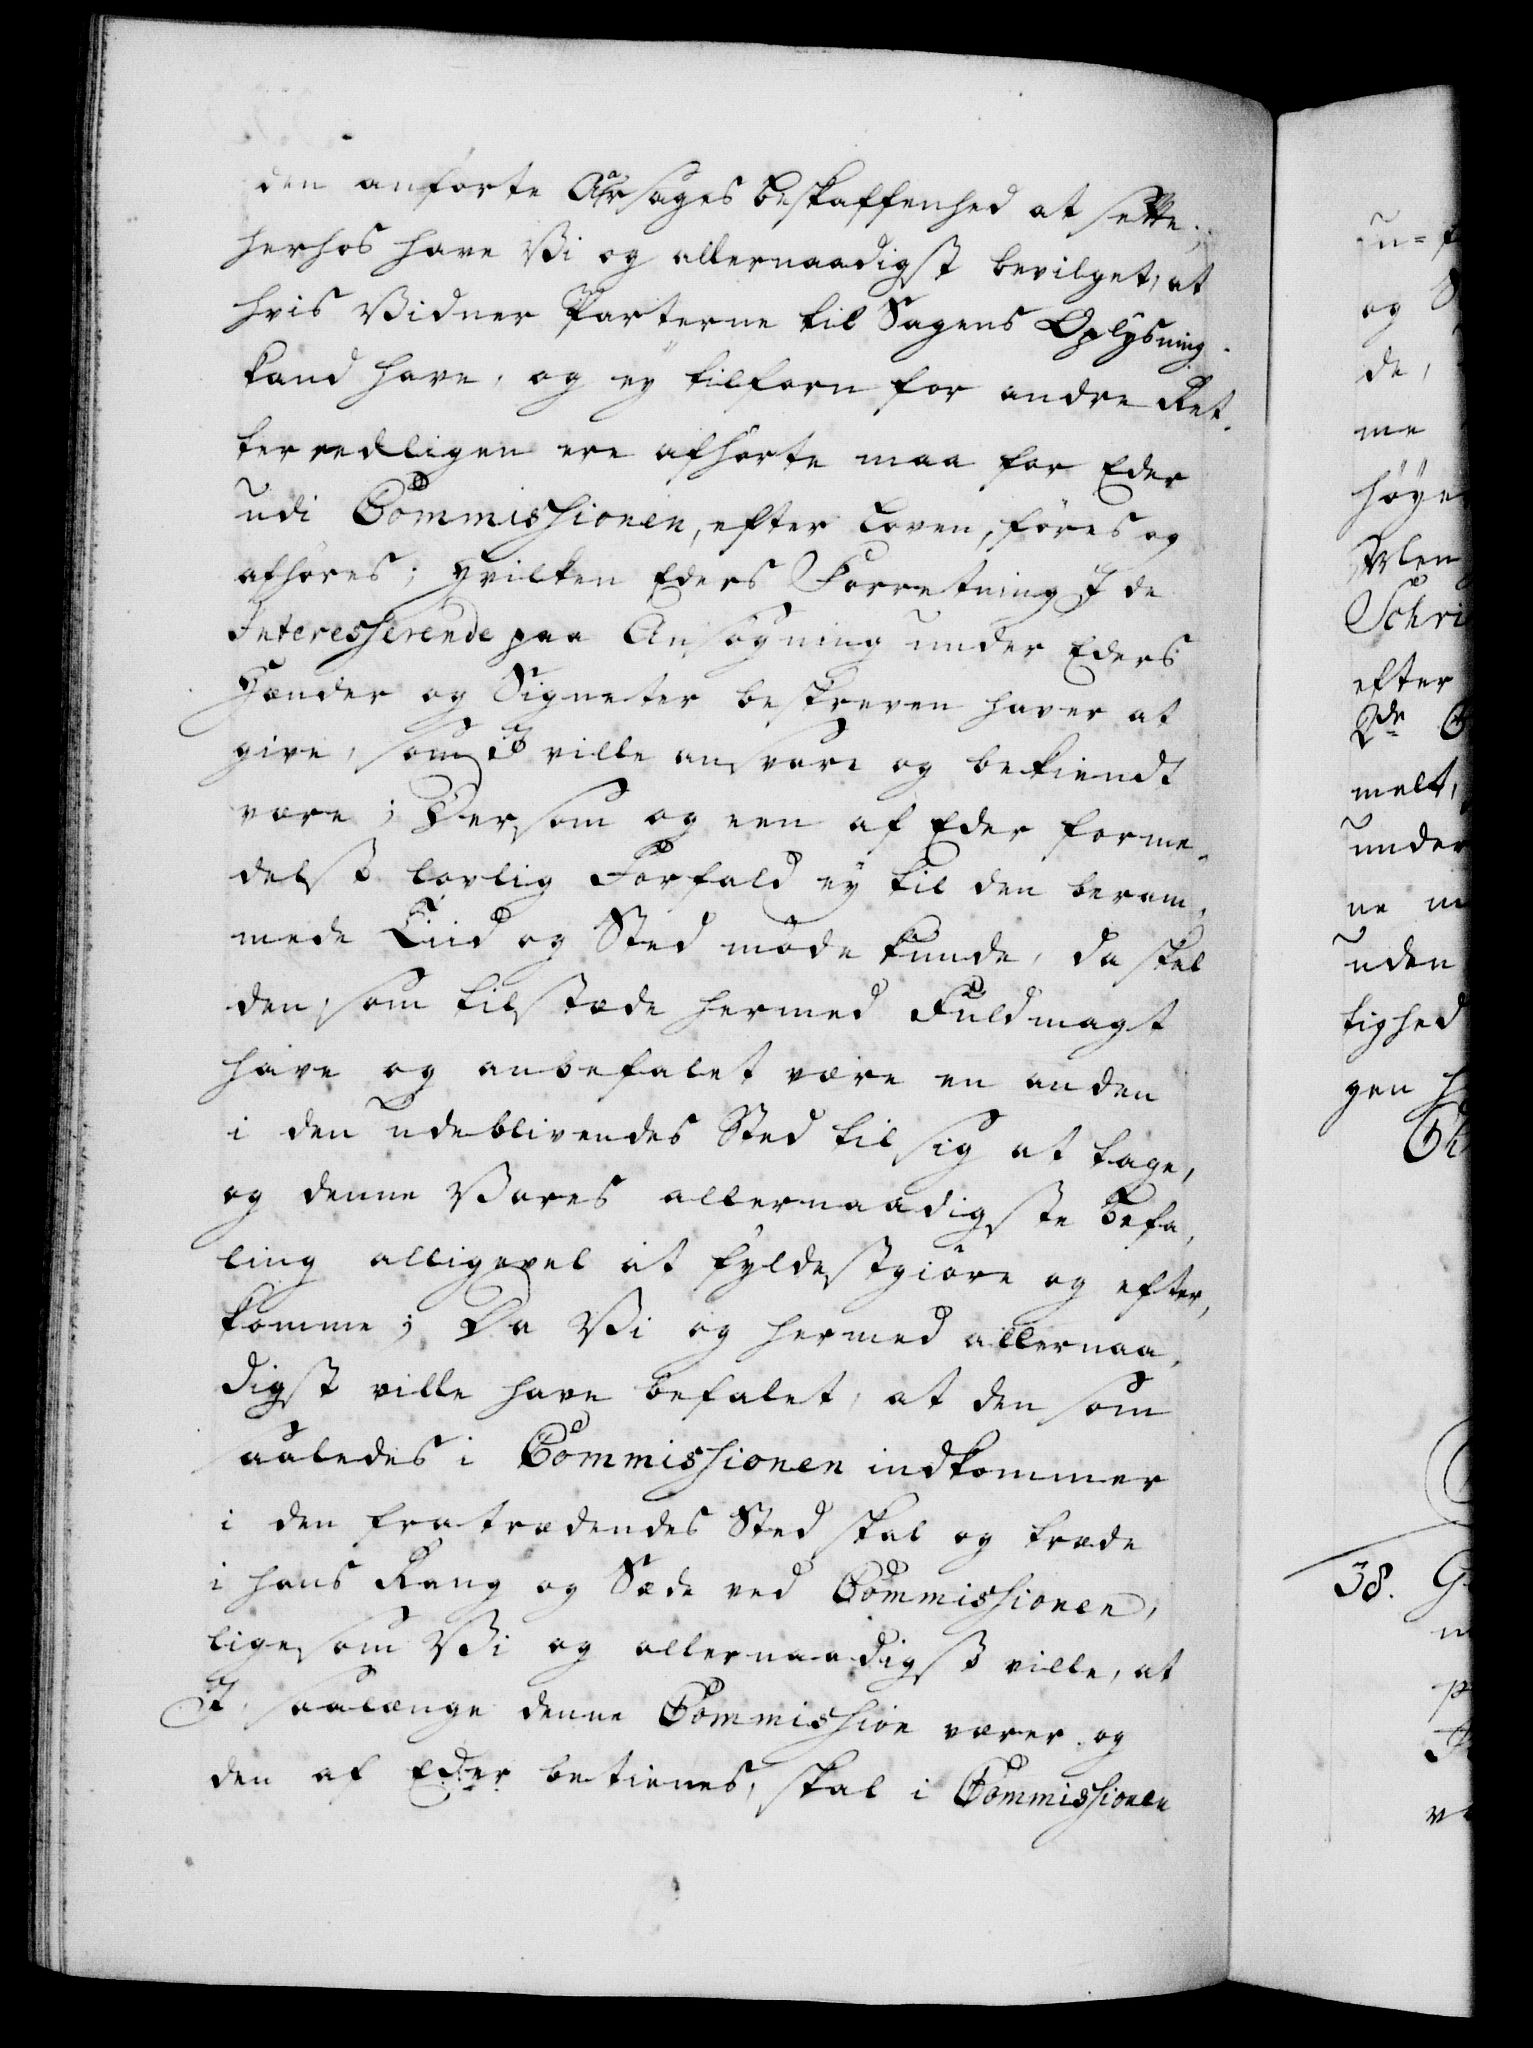 den anförte Aarsages Beskaffenhed at sætte;
herhos have Vi og allernaadigst bevilget, at
hvis Vidner Parterne til Sagens Oplysning
kand have, og ey tilforn for andre Ret-
ter eedligen ere afhörte maa for Eder
udi Commissionen, efter Loven, föres og
afhöres; Hvilken Eders Forretning I de
Interesserende paa Ansögning under Eders
Hænder og Signeter beskreven haver at
give, som I ville ansvare og bekiendt
være; Dersom og een af Eder forme-
delst lovlig Forfald ey til den beram-
mede Tiid og Sted möde kunde, da skal
den, som tilstæde hermed Fuldmagt
have og anbefalet være en anden
i den udeblivendes Sted til sig at tage,
og denne Vores allernaadigste Befa-
ling alligevel at fyldestgiöre og efter-
komme; Da Vi og hermed allernaa-
digst ville have befalet, at den som
saaledes i Commissionen indkommer
i den fratrædendes Sted skal og træde
i hans Rang og Sæde ved Commissionen,
ligesom Vi og allernaadigst ville, at
I, saalænge denne Commission varer og
den af Eder betienes, skal i Commissionen
og
de,
me
höye
Schri
efter
2de
melt,
under
ne
uden
tighed
gen
38.